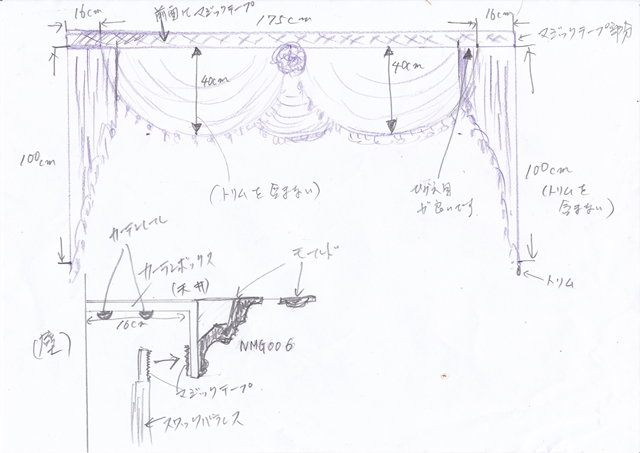 16cm
前面にマジックテープ
175cm
16cm
マジックテープ部分
40cm
40cm
100cm
(トリムを含まない)
が良いです
100cm
(トリムを
含まない)
トリム
カーテンレール
カーテンボックス
(天井)
モールド
16cm
(壁)
NMG006
マジックテープ
スワッグバランス